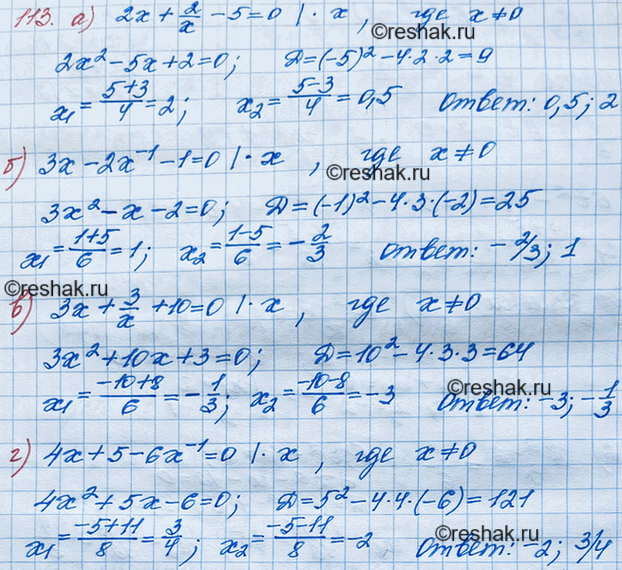 113. а) 2x + 2/x - 5 = 0 | · x, где x ≠ 0
©reshak.ru
2x² - 5x + 2 = 0; D = (-5)² - 4·2·2 = 9
x₁ = (5+3)/4 = 2; x₂ = (5-3)/4 = 0,5 ответ: 0,5; 2
б) 3x - 2x⁻¹ - 1 = 0 | · x, где x ≠ 0
©reshak.ru
3x² - x - 2 = 0; D = (-1)² - 4·3·(-2) = 25
x₁ = (1+5)/6 = 1; x₂ = (1-5)/6 = -2/3 ответ: -2/3; 1
©reshak.ru
в) 3x + 3/x + 10 = 0 | · x, где x ≠ 0
3x² + 10x + 3 = 0; D = 10² - 4·3·3 = 64
©reshak.ru
x₁ = (-10+8)/6 = -1/3; x₂ = (-10-8)/6 = -3 ответ: -3; -1/3
г) 4x + 5 - 6x⁻¹ = 0 | · x, где x ≠ 0
©reshak.ru
4x² + 5x - 6 = 0; D = 5² - 4·4·(-6) = 121
©reshak.ru
x₁ = (-5+11)/8 = 3/4; x₂ = (-5-11)/8 = -2 ответ: -2; 3/4